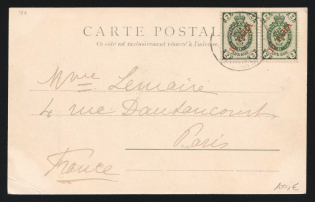 CARTE POSTALE
Ce côté est exclusivement réservé à l'adresse.
Mme Lemaire
4 rue Dautancourt
Paris
France